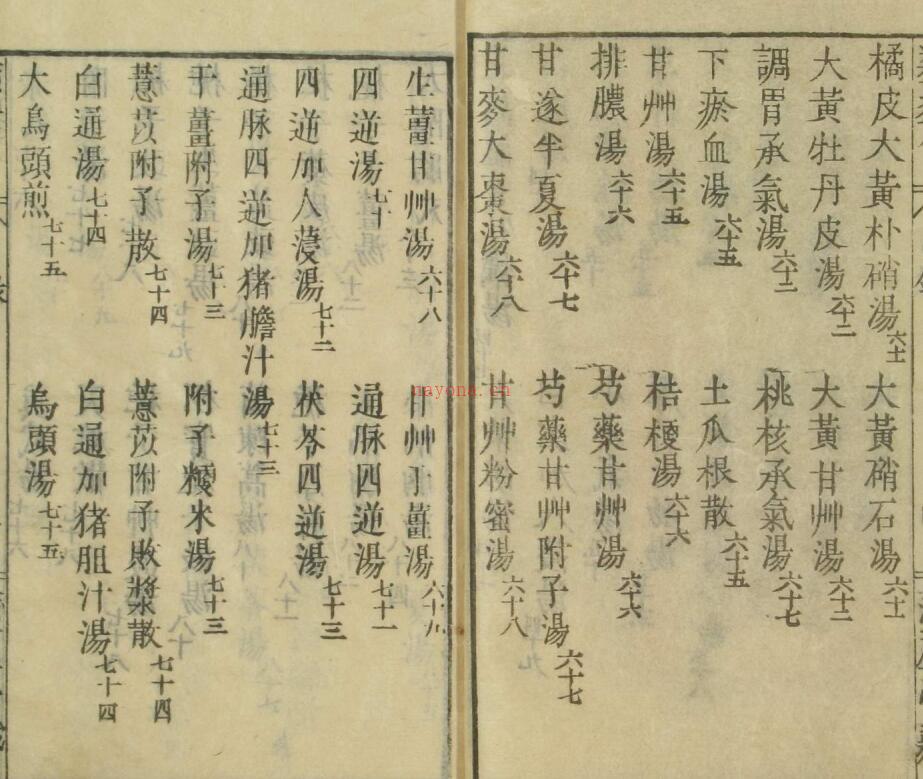 橘皮大黃朴硝湯 六十一 大黃硝石湯 六十一
大黃牡丹皮湯 六十二 大黃甘艸湯 六十二
調胃承氣湯 六十三 桃核承氣湯 六十七
下瘀血湯 六十五 土瓜根散 六十五
甘艸湯 六十五 桔梗湯 六十六
排膿湯 六十六 芍藥甘艸湯 六十六
甘遂半夏湯 六十七 芍藥甘艸附子湯 六十七
甘麥大棗湯 六十八 甘艸粉蜜湯 六十八
生薑甘艸湯 六十八 甘艸干薑湯 六十九
四逆湯 七十 通脈四逆湯 七十一
四逆加人薓湯 七十二 茯苓四逆湯 七十三
通脈四逆加猪膽汁湯 七十三
干薑附子湯 七十三 附子粳米湯 七十三
薏苡附子散 七十四 薏苡附子敗漿散 七十四
白通湯 七十四 白通加猪胆汁湯 七十四
大烏頭煎 七十五 烏頭湯 七十五
nayona.cn